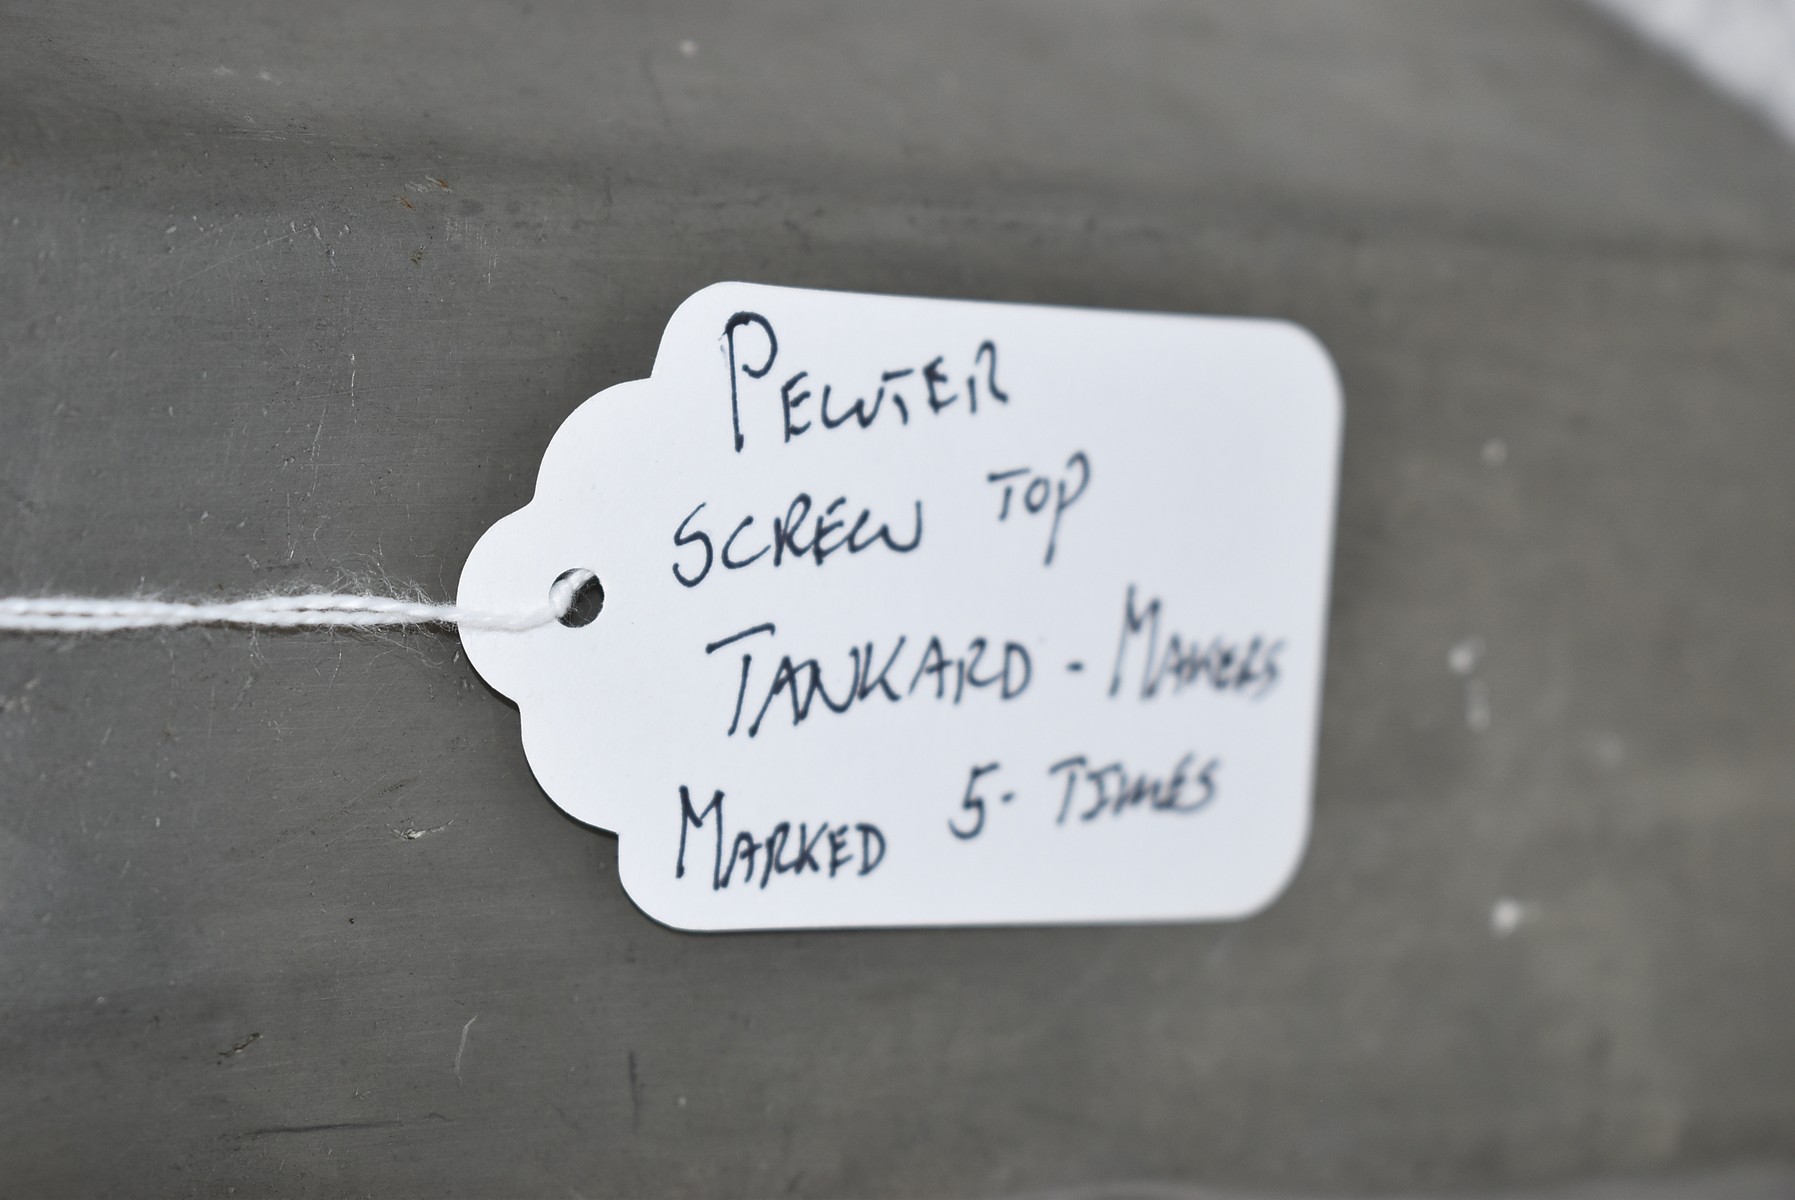 PEWTER
SCREW TOP
TANKARD - MAKERS
MARKED 5- TIMES